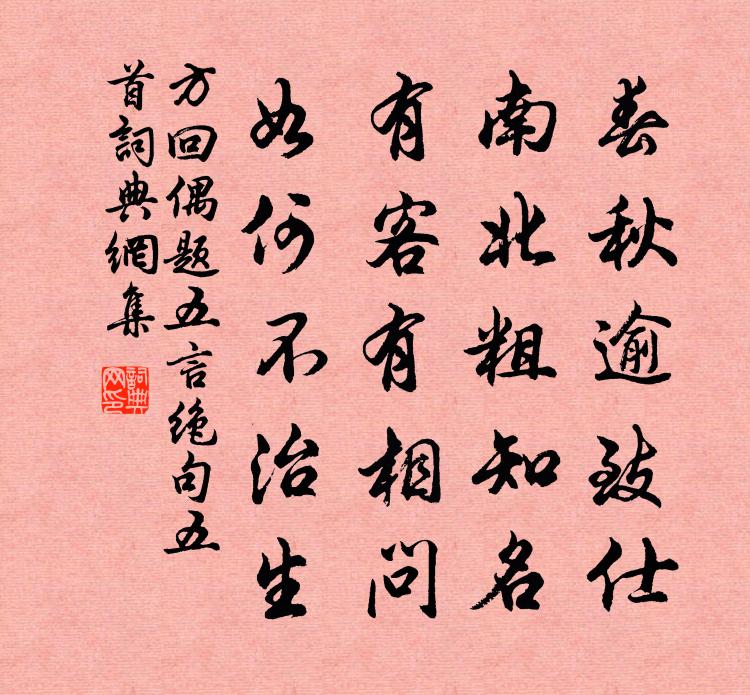 春秋逾致仕
南北粗知名
有客有相问
如何不治生
方回偶题五言绝句五
首詞典網集
詞典
网印